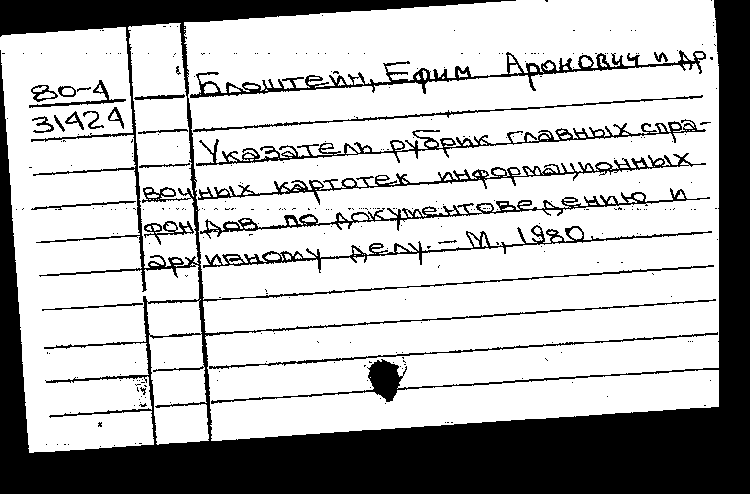 80-4
31424
Блоштейн, Ефим Аронович и др.
Указатель рубрик главных спра-
вочных картотек информационных
фондов по документоведению и
архивному делу. – М., 1980.